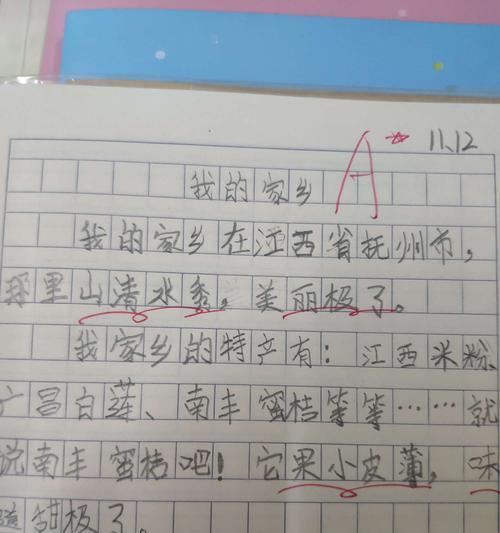 A 11.12
我的家乡
我的家乡在江西省抚州市，
里山清水秀，美丽极了。
我家乡的特产有：江西米粉、
广昌白莲、南丰蜜桔等等……就
说南丰蜜桔吧！它果小皮薄，味
道甜极了。